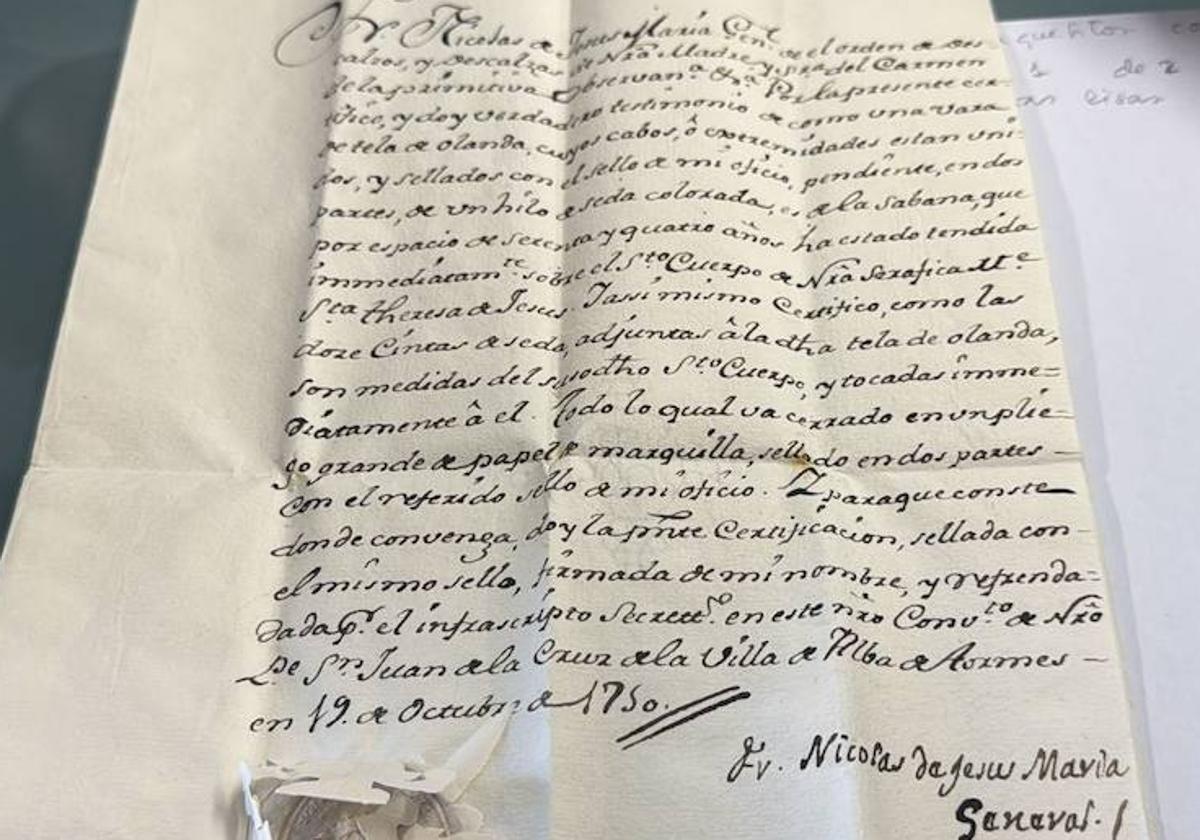 Fr. Nicolas de Jesus Maria Gen.l de el orden de Des-
calzos, y Descalzas de Nrã Madre y Srã del Carmen
de la primitiva Observan.a &.a Por la presente cer-
tifico, y doy verdadero testimonio de como una vara
de tela de olanda, cuyos cabos, ô extremidades estan uni-
dos, y sellados con el sello de mi oficio, pendiente, en dos
partes, de un hilo de seda colorada, es de la Sabana, que
por espacio de setenta y quatro años ha estado tendida
immediatam.te sobre el S.to Cuerpo de Nrã Serafica M.e
S.ta Theresa de Jesus. Iassi mismo Certifico, como las
doze Cintas de seda, adjuntas â la dha tela de olanda,
son medidas del susodho S.to Cuerpo, y tocadas imme=
diatamente â el. Todo lo qual va cerrado en un plie=
go grande de papel de marquilla, sellado en dos partes
con el referido sello de mi oficio. Y para que conste
donde convenga, doy la prnte Certificacion, sellada con
el mismo sello, firmada de mi nombre, y refrenda=
dada p.r el infrascripto Secrett.o en este nrõ Conv.to de Nrõ
P.e Sn. Juan de la Cruz de la Villa de Alba de Tormes
en 19. de Octubre de 1750.
Fr. Nicolas de Jesus Maria
General.
de 2